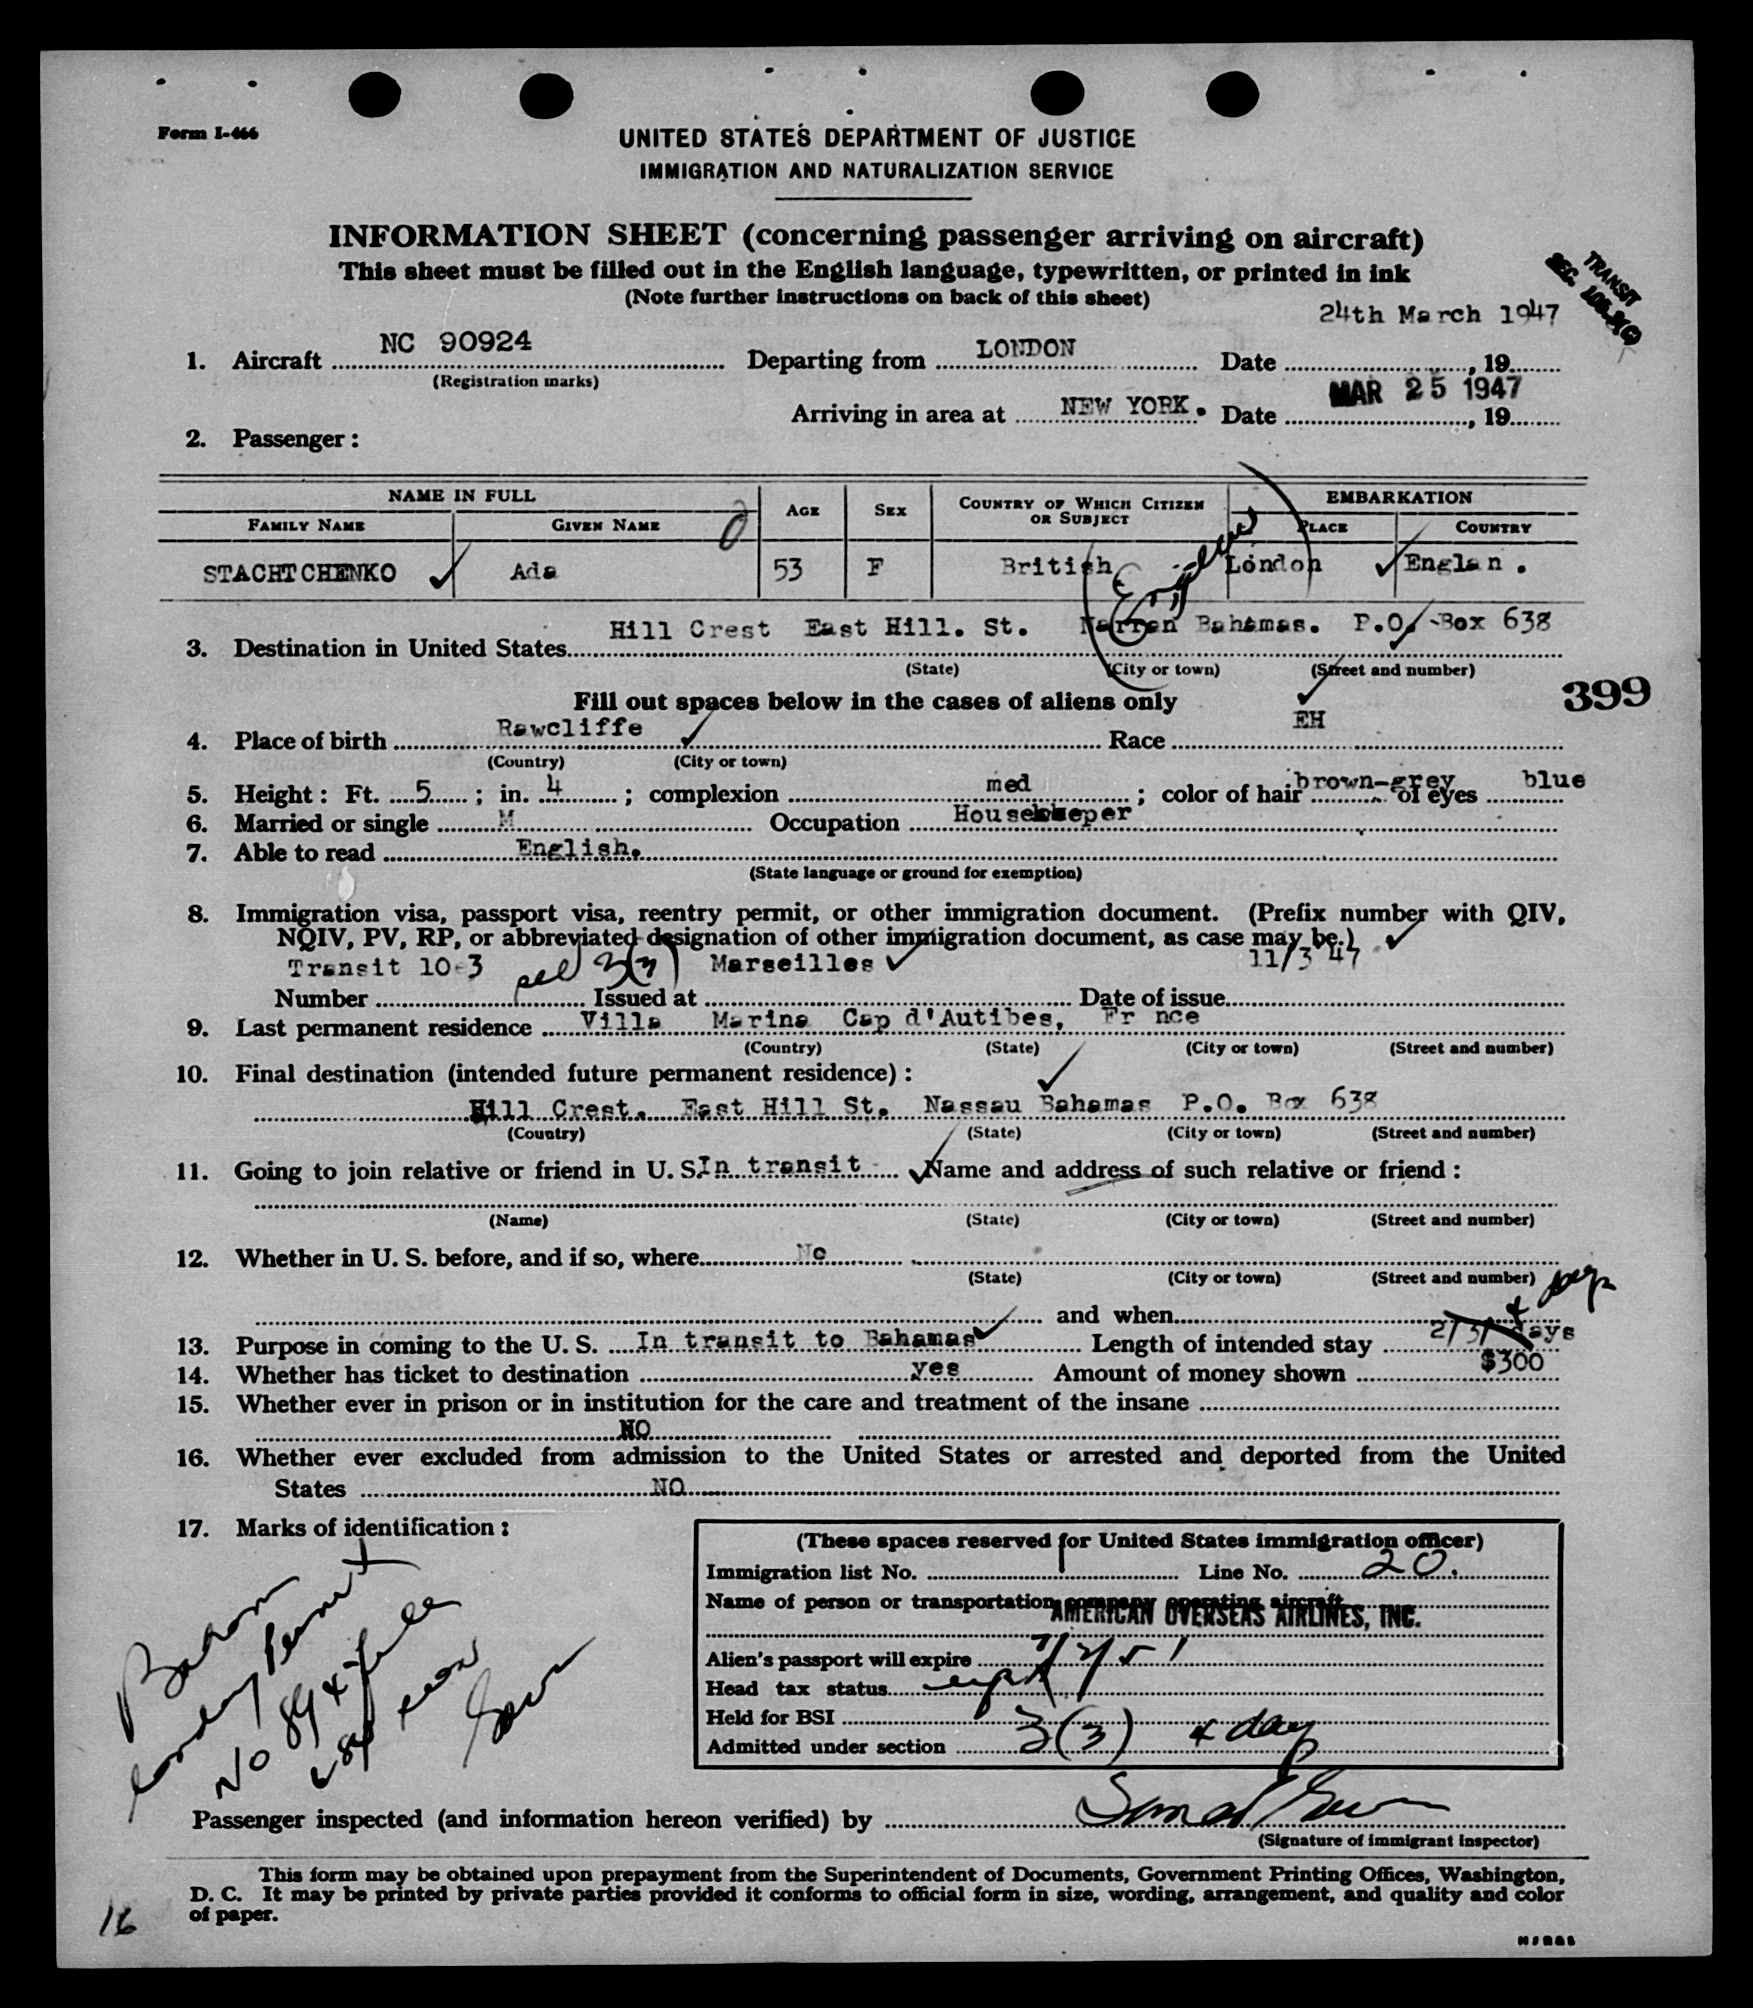 Form I-466
UNITED STATES DEPARTMENT OF JUSTICE
IMMIGRATION AND NATURALIZATION SERVICE
INFORMATION SHEET (concerning passenger arriving on aircraft)
This sheet must be filled out in the English language, typewritten, or printed in ink
(Note further instructions on back of this sheet)
TRANSIT
SEC.
24th March 1947
1. Aircraft NC 90924 Departing from LONDON Date , 19
(Registration marks)
Arriving in area at NEW YORK. Date MAR 25 1947 , 19
2. Passenger:
NAME IN FULL AGE SEX COUNTRY OF WHICH CITIZEN OR SUBJECT EMBARKATION
FAMILY NAME GIVEN NAME PLACE COUNTRY
STACHTCHENKO Ada 53 F British London Englan .
Hill Crest East Hill. St. Narran Bahamas. P.O. Box 638
3. Destination in United States
(State) (City or town) (Street and number)
Fill out spaces below in the cases of aliens only
399
4. Place of birth Rawcliffe Race EH
(Country) (City or town)
5. Height: Ft. 5 ; in. 4 ; complexion med ; color of hair brown-grey of eyes blue
6. Married or single M Occupation Housekeeper
7. Able to read English.
(State language or ground for exemption)
8. Immigration visa, passport visa, reentry permit, or other immigration document. (Prefix number with QIV,
NQIV, PV, RP, or abbreviated designation of other immigration document, as case may be.)
Transit 10-3 3(3) Marseilles 11/3 47
Number Issued at Date of issue
9. Last permanent residence Villa Marina Cap d'Autibes, Fr nce
(Country) (State) (City or town) (Street and number)
10. Final destination (intended future permanent residence):
Hill Crest. East Hill St. Nassau Bahamas P.O. Box 638
(Country) (State) (City or town) (Street and number)
11. Going to join relative or friend in U. S. In transit Name and address of such relative or friend:
(Name) (State) (City or town) (Street and number)
12. Whether in U. S. before, and if so, where No
(State) (City or town) (Street and number)
and when
13. Purpose in coming to the U. S. In transit to Bahamas Length of intended stay 2/3/ days
14. Whether has ticket to destination yes Amount of money shown $300
15. Whether ever in prison or in institution for the care and treatment of the insane
NO
16. Whether ever excluded from admission to the United States or arrested and deported from the United
States NO
17. Marks of identification:
(These spaces reserved for United States immigration officer)
Immigration list No. 1 Line No. 20.
Name of person or transportation company operating aircraft
AMERICAN OVERSEAS AIRLINES, INC.
Alien's passport will expire
Head tax status
Held for BSI
Admitted under section 3(3) 4 day
Passenger inspected (and information hereon verified) by
(Signature of immigrant inspector)
This form may be obtained upon prepayment from the Superintendent of Documents, Government Printing Offices, Washington,
D. C. It may be printed by private parties provided it conforms to official form in size, wording, arrangement, and quality and color
of paper.
16